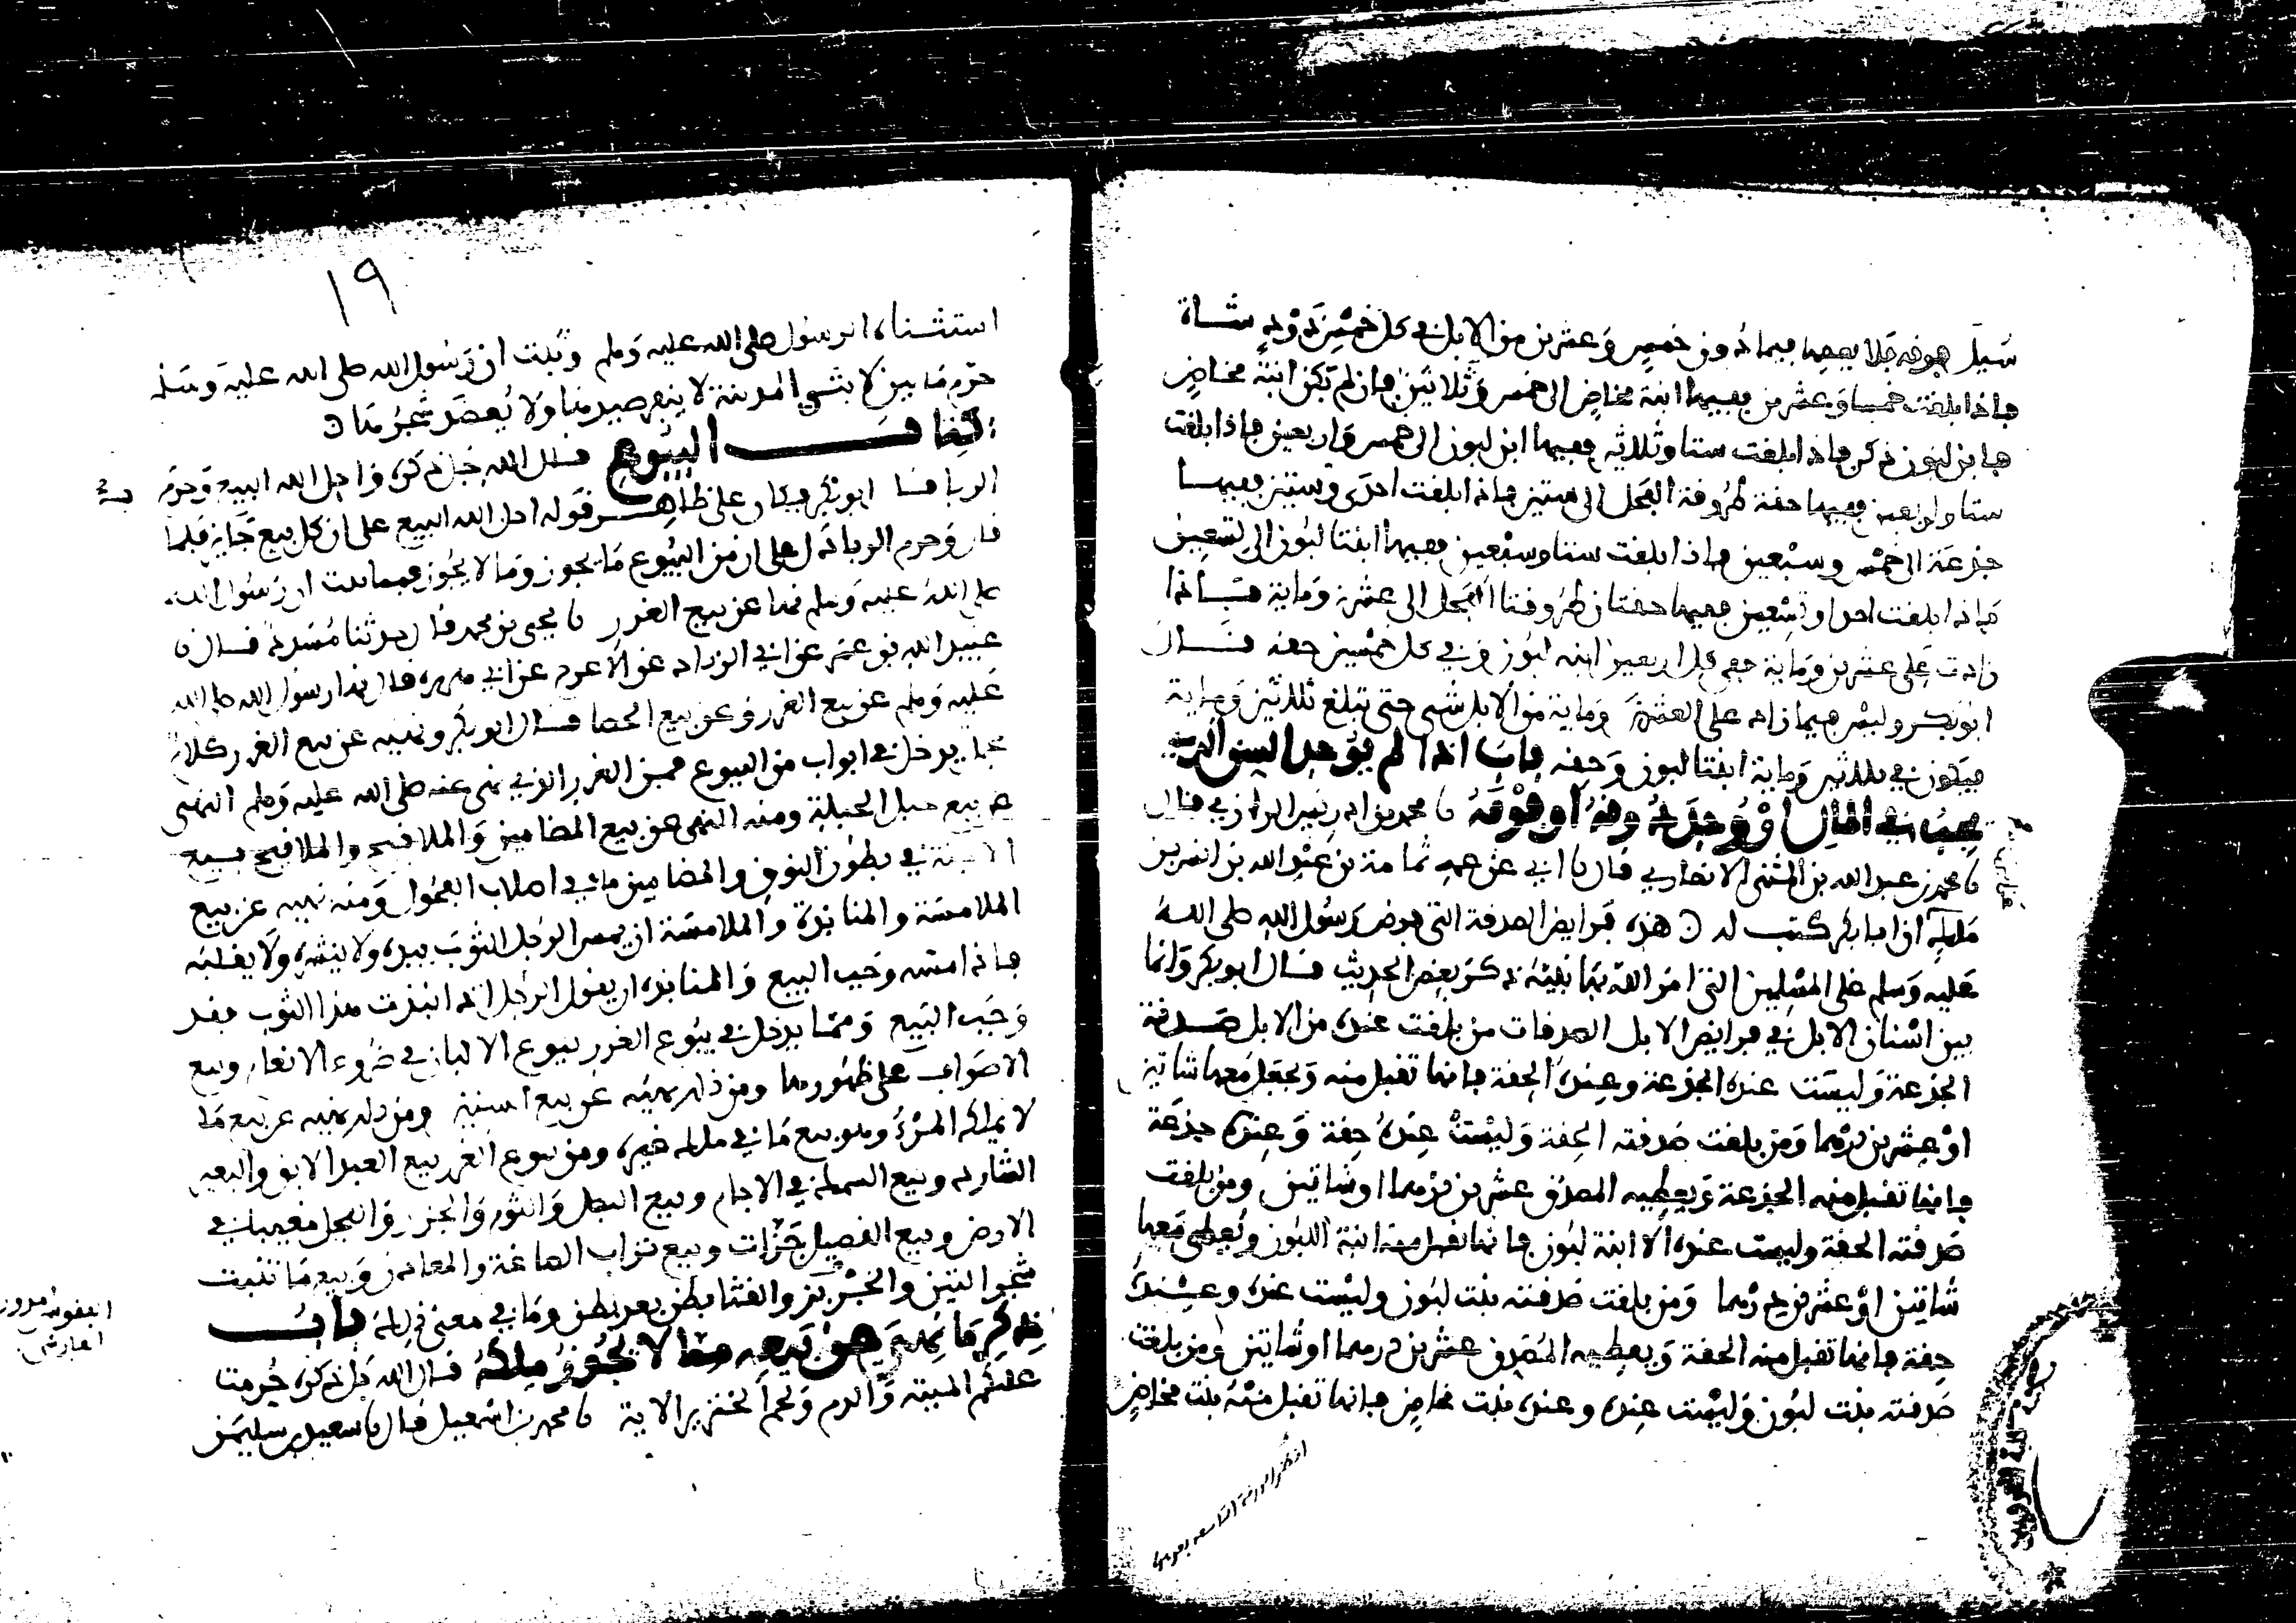 سيل فوقه فلا يعطه فيما دون خمس وعشرين من الابل في كل خمس ذود شاة
فاذا بلغت خمسا وعشرين ففيها ابنة مخاض الى خمس وثلاثين فان لم تكن ابنة مخاض
فابن لبون ذكر فاذا بلغت ستا وثلاثين ففيها ابن لبون الى خمس واربعين فاذا بلغت
ستا واربعين ففيها حقة طروقة الفحل الى ستين فاذا بلغت احدى وستين ففيها
جذعة الى خمس وسبعين فاذا بلغت ستا وسبعين ففيها ابنتا لبون الى تسعين
فاذا بلغت احدا وتسعين ففيها حقتان طروقتا الفحل الى عشرين وماية فاذا
زادت على عشرين وماية ففي كل اربعين ابنة لبون وفي كل خمسين حقة قال
ابو بكر وليس فيما زاد على العشرين وماية من الابل شي حتى تبلغ ثلاثين وماية
فيكون في ثلاثين وماية ابنتا لبون وحقة باب اذا لم يوجد السن الذي
يجب في المال او وجد دونه او فوقه نا محمد بن ادريس الرازي قال
نا محمد بن عبد الله بن المثنى الانصاري قال نا ابي عن عمه ثمامة بن عبد الله بن انس بن
ملك ان ابا بكر كتب له ن هذه فرايض الصدقة التي فرض رسول الله صلى الله
عليه وسلم على المسلمين التي امر الله بها نبيه ذكر بعض الحديث قال ابو بكر وانما
بين اسنان الابل في فرايض الابل الصدقات من بلغت عنده من الابل صدقة
الجذعة وليست عنده الجذعة وعنده الحقة فانها تقبل منه ويجعل معها شاتين
او عشرين درهما ومن بلغت صدقته الحقة وليست عنده حقة وعنده جذعة
فانها تقبل منه الجذعة ويعطيه المصدق عشرين درهما او شاتين ومن بلغت
صدقته الحقة وليست عنده الا ابنة لبون فانها تقبل منه ابنة اللبون ويعطى معها
شاتين او عشرين درهما ومن بلغت صدقته بنت لبون وليست عنده وعنده
حقة فانها تقبل منه الحقة ويعطيه المصدق عشرين درهما او شاتين ومن بلغت
صدقته بنت لبون وليست عنده وعنده بنت مخاض فانها تقبل منه بنت مخاض
انظر الورقة التاسعة بعدها
١٩
استثناه الرسول صلى الله عليه وسلم وثبت ان رسول الله صلى الله عليه وسلم
حرم ما بين لابتي المدينة لا ينفر صيدها ولا يعضد شجرها ن
كتاب البيوع قال الله جل ذكره واحل الله البيع وحرم
الربا قال ابو بكر فكان على ظاهر قوله احل الله البيع على ان كل بيع جايز فلما
قال وحرم الربا دل على ان من البيوع ما يجوز وما لا يجوز فمما ثبت ان رسول الله
صلى الله عليه وسلم نهى عن بيع الغرر نا يحيى بن محمد قال حدثنا مسدد قال نا
عبيد الله بن عمر عن ابي الزناد عن الاعرج عن ابي هريرة قال نهى رسول الله صلى الله
عليه وسلم عن بيع الغرر وعن بيع الحصا قال ابو بكر ونهيه عن بيع الغرر كلام
يدخل في ابواب من البيوع فمن الغرر الذي نهى عنه صلى الله عليه وسلم النهي
عن بيع حبل الحبلة ومنه النهي عن بيع المضامين والملاقيح والملاقيح بيع
الاجنة في بطون النوق والمضامين ما في اصلاب الفحول ومنه نهيه عن بيع
الملامسة والمنابذة والملامسة ان يمس الرجل الثوب بيده ولا ينشره ولا يقلبه
فاذا مسه وجب البيع والمنابذة ان يقول الرجل اذا نبذت هذا الثوب فقد
وجب البيع ومما يدخل في بيوع الغرر بيوع الالبان في ضروع الانعام وبيع
الاصواف على ظهورها ومن ذلك نهيه عن بيع السنين ومن ذلك نهيه عن بيع ما
لا يملكه المرء وهو بيع ما في ملك غيره ومن بيوع الغرر بيع العبد الابق والبعير
الشارد وبيع السمك في الاجام وبيع البصل والثوم والجزر والفجل مغيبات في
الارض وبيع الفصيل جزات وبيع تراب الصاغة والمعادن وبيع ما تنبت
شجر التين والخربز والقثا بطن بعد بطن وما في معنى ذلك باب
ذكر ما نهي عن بيعه مما لا يجوز ملكه قال الله جل ذكره حرمت
عليكم الميتة والدم ولحم الخنزير الاية نا محمد بن اسمعيل قال نا سعيد بن سليمن